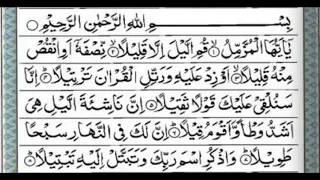 بِسْمِ اللهِ الرَّحْمٰنِ الرَّحِيْمِ
يٰٓاَيُّهَا الْمُزَّمِّلُ ۙ قُمِ الَّيْلَ اِلَّا قَلِيْلًا ۙ نِّصْفَهٗٓ اَوِ انْقُصْ
مِنْهُ قَلِيْلًا ۙ اَوْ زِدْ عَلَيْهِ وَرَتِّلِ الْقُرْاٰنَ تَرْتِيْلًا ؕ اِنَّا
سَنُلْقِيْ عَلَيْكَ قَوْلًا ثَقِيْلًا ۞ اِنَّ نَاشِئَةَ الَّيْلِ هِيَ
اَشَدُّ وَطْاً وَّاَقْوَمُ قِيْلًا ؕ اِنَّ لَكَ فِي النَّهَارِ سَبْحًا
طَوِيْلًا ؕ وَاذْكُرِ اسْمَ رَبِّكَ وَتَبَتَّلْ اِلَيْهِ تَبْتِيْلًا ؕ